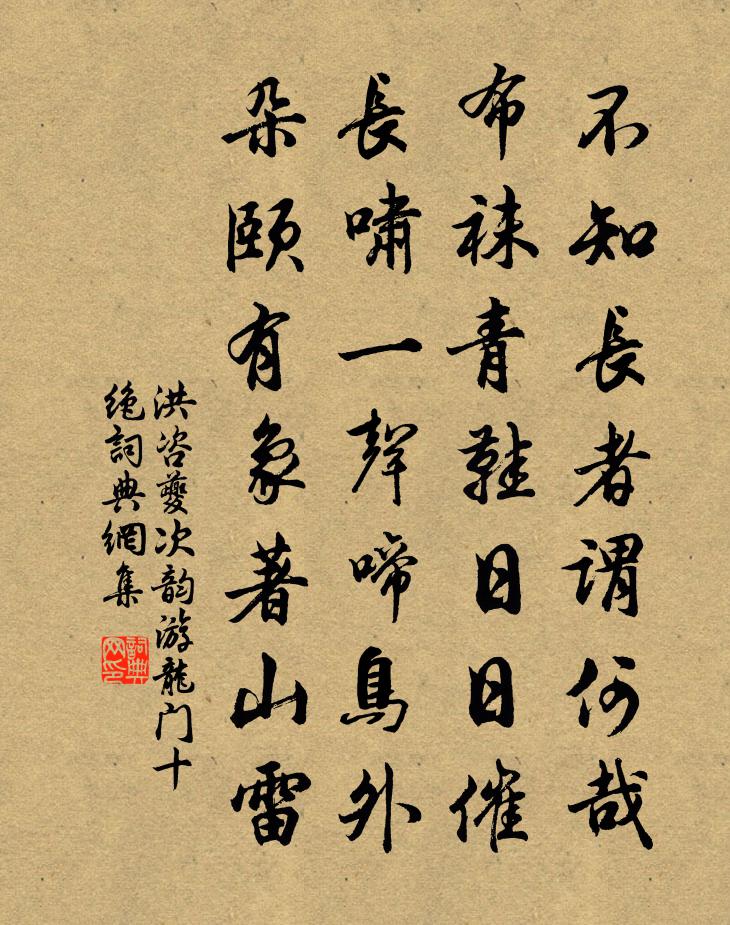 不知長者謂何哉
布袜青鞋日日催
長嘯一聲啼鳥外
朶頤有象著山雷
洪咨夔次韵游龍门十
绝詞典網集
詞典网印